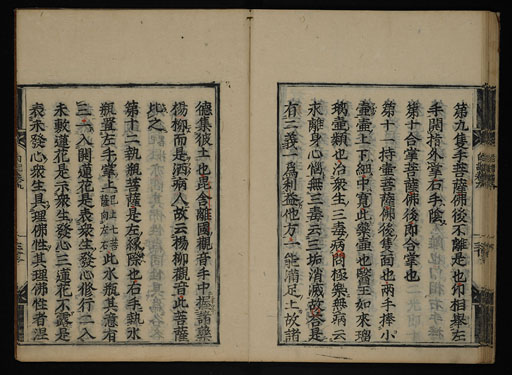 第九隻手菩薩佛後不離是也仰相舉左
手開指外掌右手陰
第十合掌菩薩佛後即合掌也
第十一持壷菩薩佛後隻面也兩手捧小
壷壷上下細中寬此藥壷也醫王如來瑠
璃壷類也治衆生三毒病問極樂無病云
求離身心惱無三毒云三垢消滅故答是
有二義一爲利益他方一能滿足上故諸
德集彼土也毘舍離國觀音手中操諸藥
楊柳而是洒病人故云楊柳觀音此菩薩
此之
第十二執瓶菩薩是左緣際也右手執水
瓶置左手掌上已上七菩薩向左右此水瓶其意有
三一入開蓮花是表衆生發心修行二入
未敷蓮花是示衆生發心三蓮花不露是
表未發心衆生具理佛性其理佛性者涅